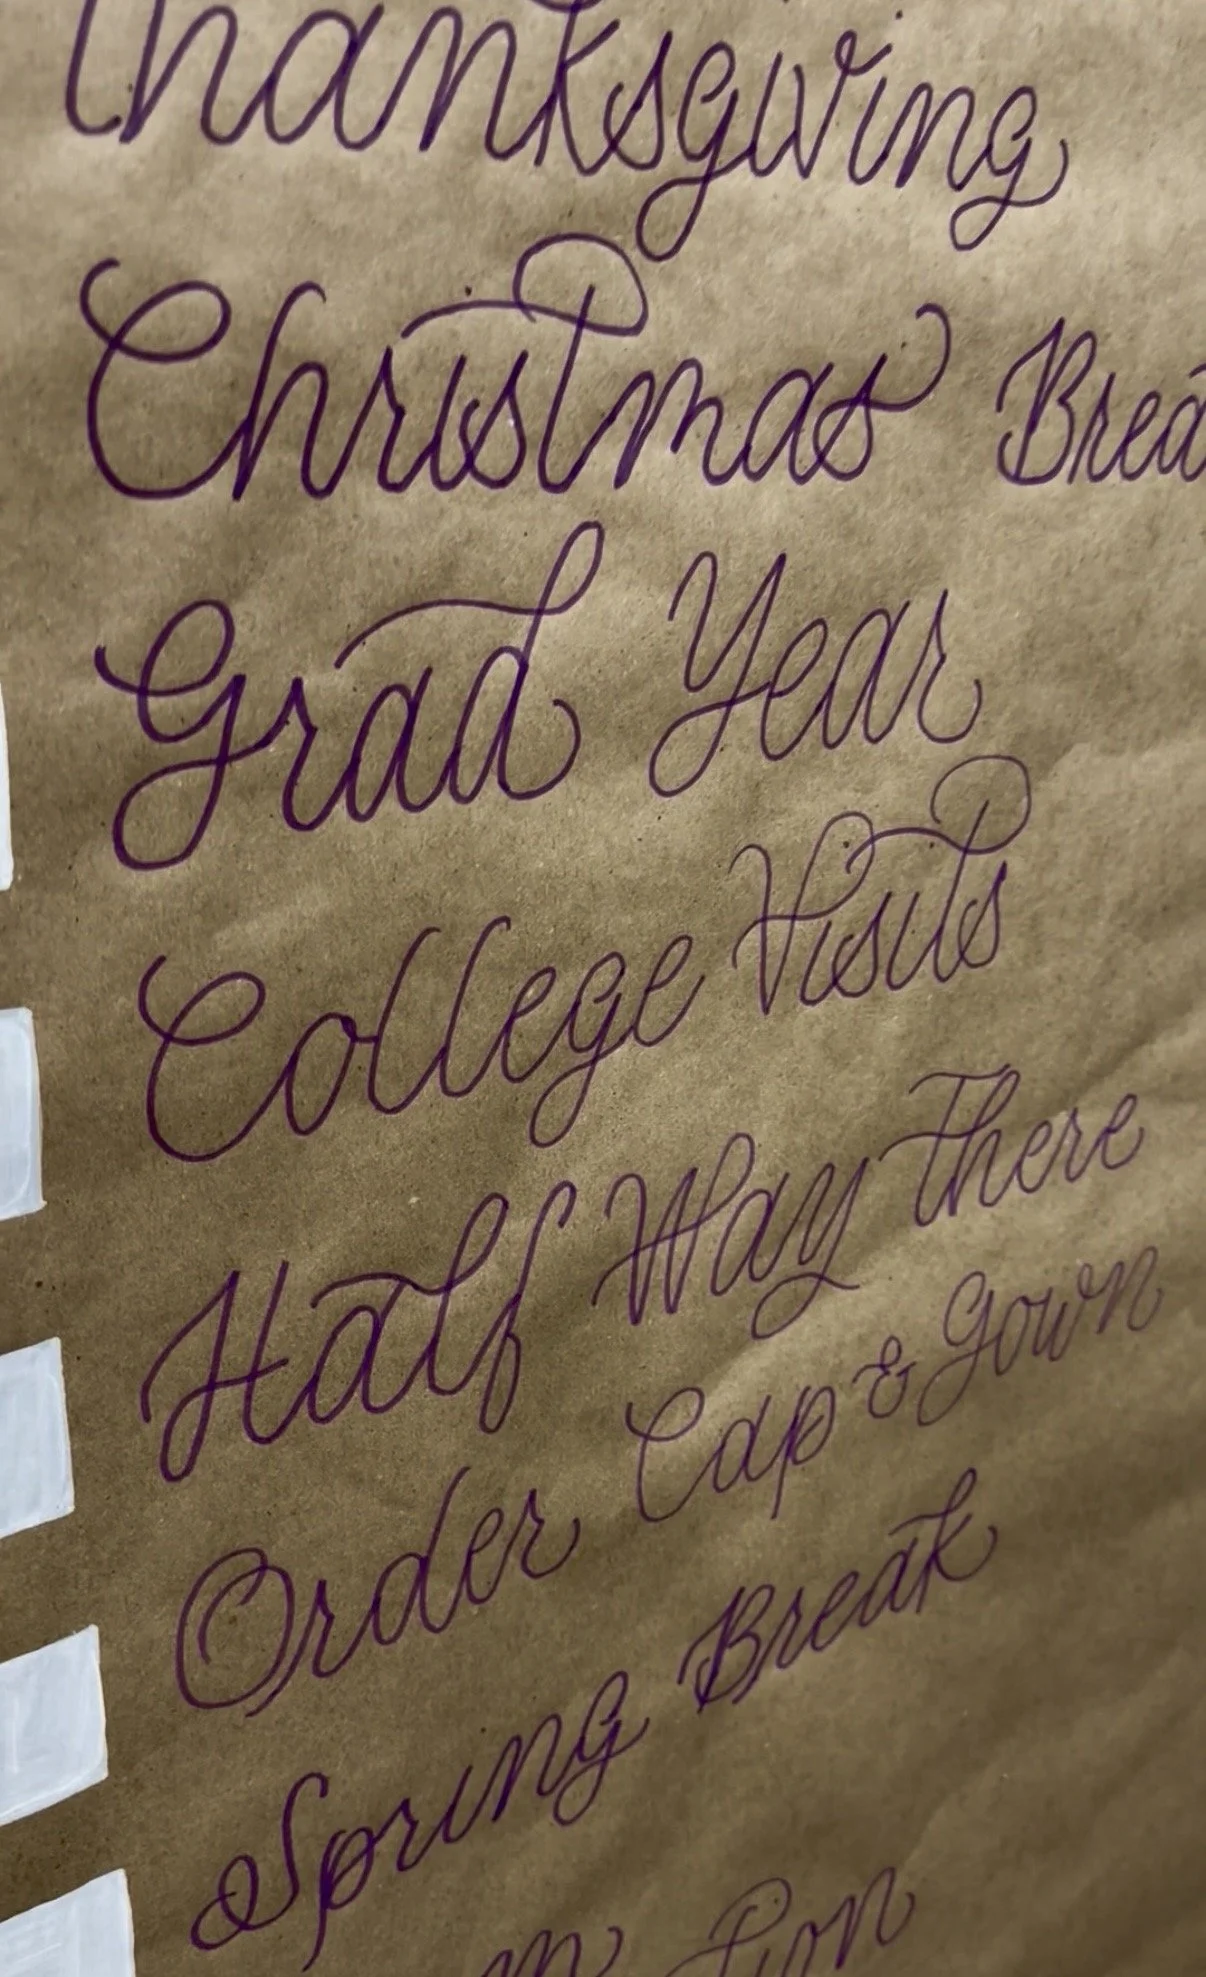 Thanksgiving
Christmas Brea
Grad Year
College Visits
Half Way There
Order Cap & Gown
Spring Break